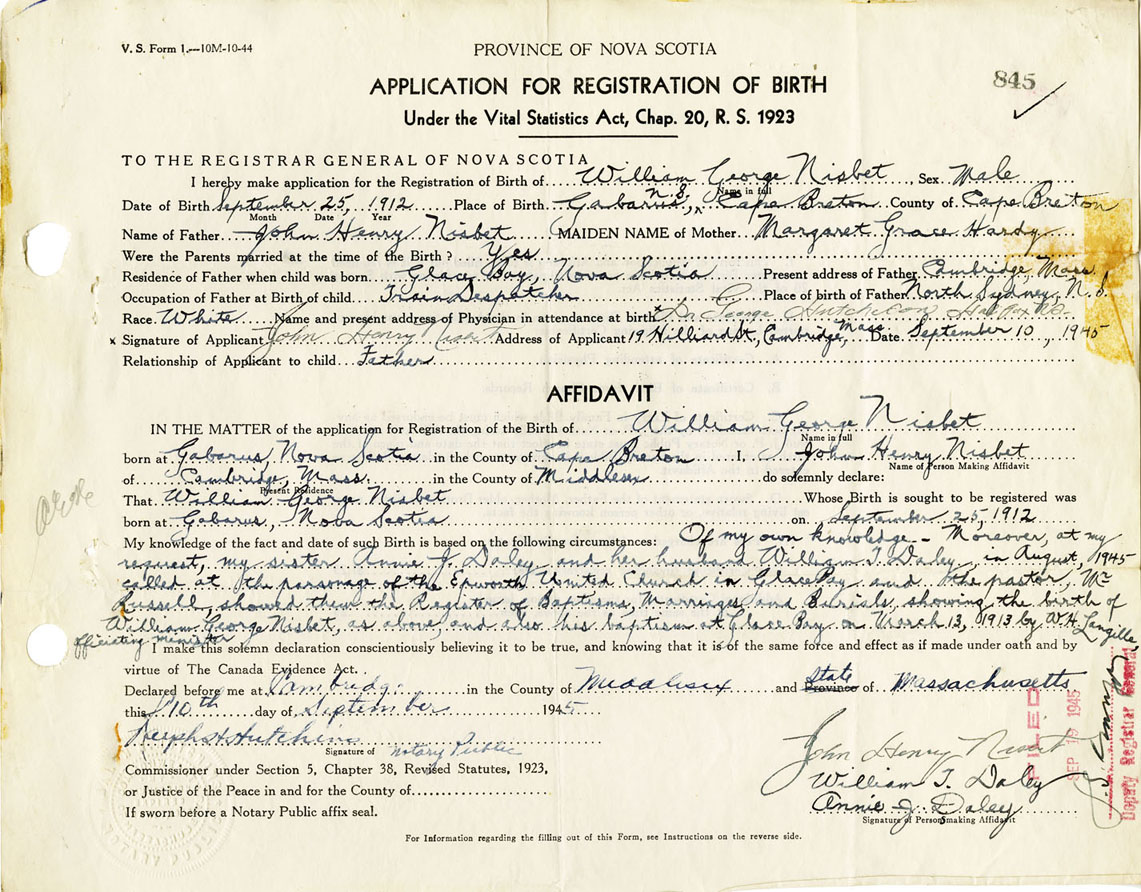 V. S. Form 1.—10M-10-44
PROVINCE OF NOVA SCOTIA
845
APPLICATION FOR REGISTRATION OF BIRTH
Under the Vital Statistics Act, Chap. 20, R. S. 1923
TO THE REGISTRAR GENERAL OF NOVA SCOTIA
I hereby make application for the Registration of Birth of William George Nisbet, Sex Male
Name in full
Date of Birth September 25, 1912 Place of Birth Gabarus, N.S., Cape Breton County of Cape Breton
Month Date Year
Name of Father John Henry Nisbet MAIDEN NAME of Mother Margaret Grace Hardy
Were the Parents married at the time of the Birth? Yes
Residence of Father when child was born Glace Bay, Nova Scotia Present address of Father Cambridge, Mass.
Occupation of Father at Birth of child Train Despatcher Place of birth of Father North Sydney, N.S.
Race White Name and present address of Physician in attendance at birth Dr. George Hutchison Halifax N.S.
x Signature of Applicant John Henry Nisbet Address of Applicant 19 Hilliard St, Cambridge, Mass. Date September 10, 1945
Relationship of Applicant to child Father
AFFIDAVIT
IN THE MATTER of the application for Registration of the Birth of William George Nisbet
Name in full
born at Gabarus, Nova Scotia in the County of Cape Breton I, John Henry Nisbet
Name of Person Making Affidavit
of Cambridge, Mass. in the County of Middlesex do solemnly declare:
Present Residence
That William George Nisbet Whose Birth is sought to be registered was
born at Gabarus, Nova Scotia on September 25, 1912
My knowledge of the fact and date of such Birth is based on the following circumstances: Of my own knowledge - Moreover, at my
request, my sister Annie J. Daley and her husband William T. Daley, in August, 1945
called at the parsonage of the Epworth United Church in Glace Bay and the pastor, Mr
Russell, showed them the Register of Baptisms, Marriages, and Burials, showing the birth of
William George Nisbet, as above, and also his baptism at Glace Bay on March 13, 1913 by W.H. Langille,
officiating minister
I make this solemn declaration conscientiously believing it to be true, and knowing that it is of the same force and effect as if made under oath and by
virtue of The Canada Evidence Act.
Declared before me at Cambridge in the County of Middlesex and Province State of Massachusetts
this 10th day of September 1945
Signature of Notary Public
John Henry Nisbet
Commissioner under Section 5, Chapter 38, Revised Statutes, 1923,
William T. Daley
or Justice of the Peace in and for the County of
Annie J. Daley
Signature of Persons making Affidavit
If sworn before a Notary Public affix seal.
For Information regarding the filling out of this Form, see Instructions on the reverse side.
FILED
SEP 19 1945
Deputy Registrar General